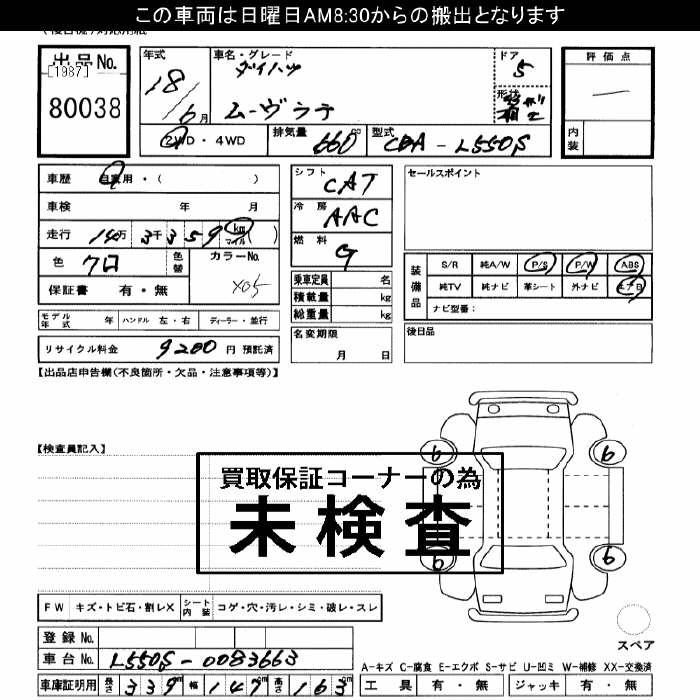 この車両は日曜日AM8:30からの搬出となります
出品No.
[1987]
80038
年式
18/6月
車名・グレード
ダイハツ
ムーヴラテ
ドア
5
形状
評価点
内装
2WD・4WD
排気量
660cc
型式
CBA-L550S
車歴 自家用・( )
車検 年 月
走行 14万3千359km マイル( )
色 クロ 色替 カラーNo. X05
保証書 有・無
モデル年式 年 ハンドル 左・右 ディーラー・並行
リサイクル料金 9200円 預託済
シフト CAT
冷房 AAC
燃料 G
乗車定員 名
積載量 kg
総重量 kg
名変期限
月 日
セールスポイント
装備品
S/R 純A/W P/S P/W ABS
純TV 純ナビ 革シート 外ナビ エアB
ナビ型番:
後日品
【出品店申告欄(不良箇所・欠品・注意事項等)】
【検査員記入】
6 6
買取保証コーナーの為
未検査
6 6
FW キズ・トビ石・割レX シート内装 コゲ・穴・汚レ・シミ・破レ・スレ
スペア
登録No.
車台No. L550S-0083663
A-キズ C-腐食 E-エクボ S-サビ U-凹ミ W-補修 XX-交換済
車庫証明用 長さ 339cm 幅 147cm 高さ 163cm 工具 有・無 ジャッキ 有・無